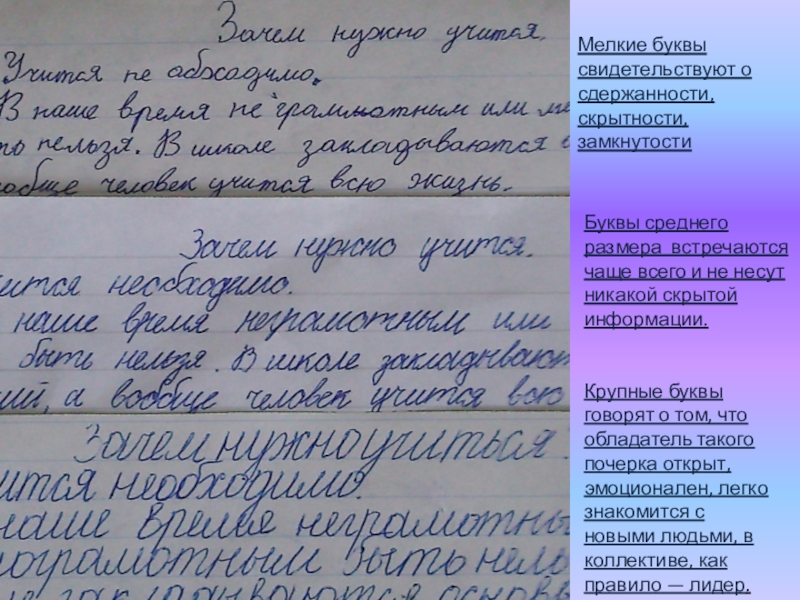 Зачем нужно учится.
Учится не абходимо.
В наше время не грамотным или
то нельзя. В школе закладываются
ообще человек учится всю жизнь.
Зачем нужно учится.
ится необходимо.
наше время неграмотным или
быть нельзя. В школе закладывают
ий, а вообще человек учится всю
Зачем нужно учиться?
ится необходимо.
наше время неграмотны
ограмотным быть нель
закладываются основы
Мелкие буквы
свидетельствуют о
сдержанности,
скрытности,
замкнутости
Буквы среднего
размера встречаются
чаще всего и не несут
никакой скрытой
информации.
Крупные буквы
говорят о том, что
обладатель такого
почерка открыт,
эмоционален, легко
знакомится с
новыми людьми, в
коллективе, как
правило — лидер.